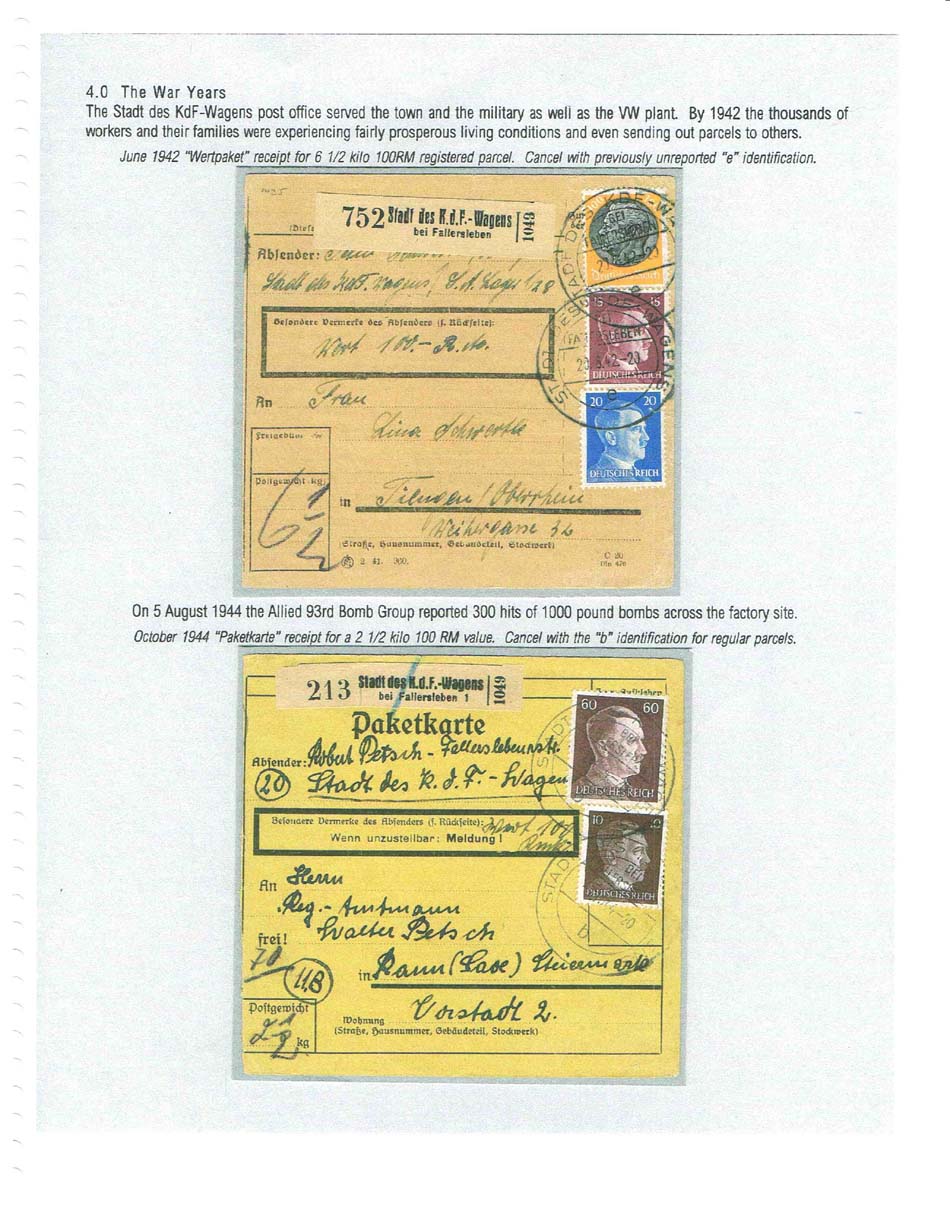 4.0 The War Years
The Stadt des KdF-Wagens post office served the town and the military as well as the VW plant. By 1942 the thousands of
workers and their families were experiencing fairly prosperous living conditions and even sending out parcels to others.
June 1942 "Wertpaket" receipt for 6 1/2 kilo 100RM registered parcel. Cancel with previously unreported "e" identification.
752 Stadt des K.d.F.-Wagens
bei Fallersleben
1049
Absender:
Stadt des KdF. Wagens
Besondere Vermerke des Absenders (s. Rückseite):
Wert 100.- R.M.
An Frau
Lina Schwertle
Postgewicht kg
6 1/2
in Tiengen / Oberrhein
Weihergasse 32
(Straße, Hausnummer, Gebäudeteil, Stockwerk)
2. 41.
C 20
Din 476
STADT DES KDF-W
15 15
DEUTSCHES REICH
STADT DES KDF WAGENS
FALLERSLEBEN
42-20
e
20 20
DEUTSCHES REICH
On 5 August 1944 the Allied 93rd Bomb Group reported 300 hits of 1000 pound bombs across the factory site.
October 1944 "Paketkarte" receipt for a 2 1/2 kilo 100 RM value. Cancel with the "b" identification for regular parcels.
213 Stadt des K.d.F.-Wagens
bei Fallersleben 1
1049
Paketkarte
Absender: Robert Petsch - Fallerslebenstr.
20 Stadt des K.d.F.-Wagen
Besondere Vermerke des Absenders (s. Rückseite): Wert 100
Wenn unzustellbar: Meldung!
An Herrn
Reg.-Amtmann
Walter Petsch
frei!
70
in Rann (Save) Steiermark
Vorstadt 2.
Postgewicht
2 1/2 kg
Wohnung
(Straße, Hausnummer, Gebäudeteil, Stockwerk)
60 60
DEUTSCHES REICH
10 10
DEUTSCHES REICH
STADT DES
b